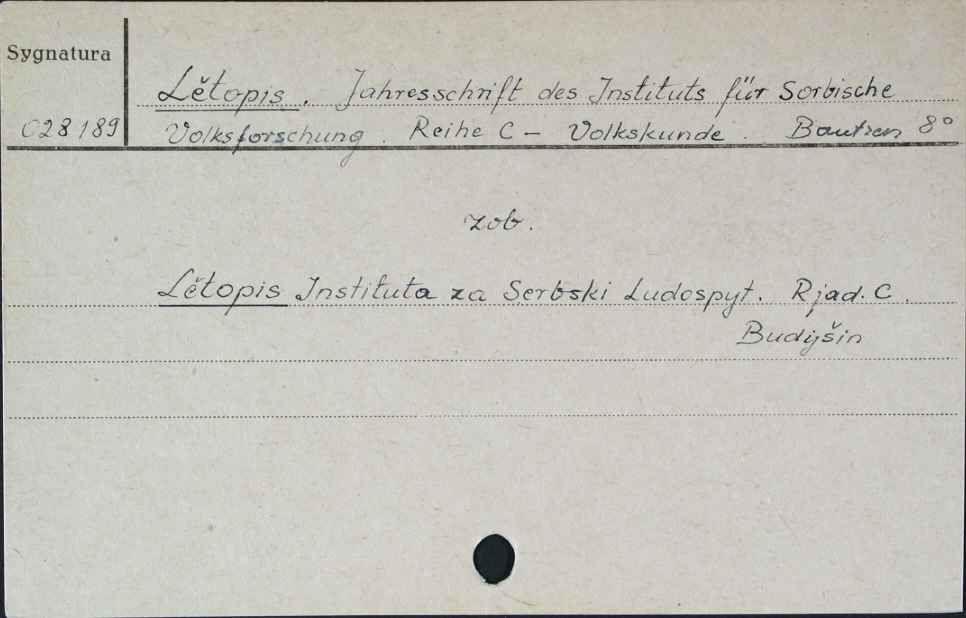 Sygnatura
Lětopis. Jahresschrift des Instituts für Sorbische
C28189 Volksforschung. Reihe C – Volkskunde. Bautzen 8°
zob.
Lětopis Instituta za Serbski Ludospyt. Rjad. C.
Budyšin